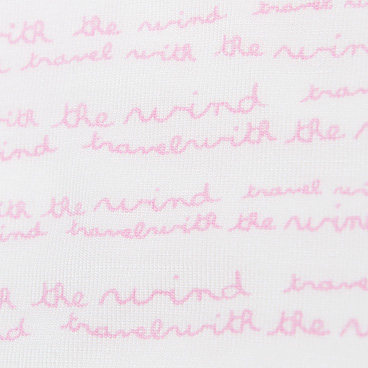 with the wind travel
travel with the wind
with the wind
wind travelwith the
with the wind travel
wind travelwith the wind
the wind travel
travelwith the